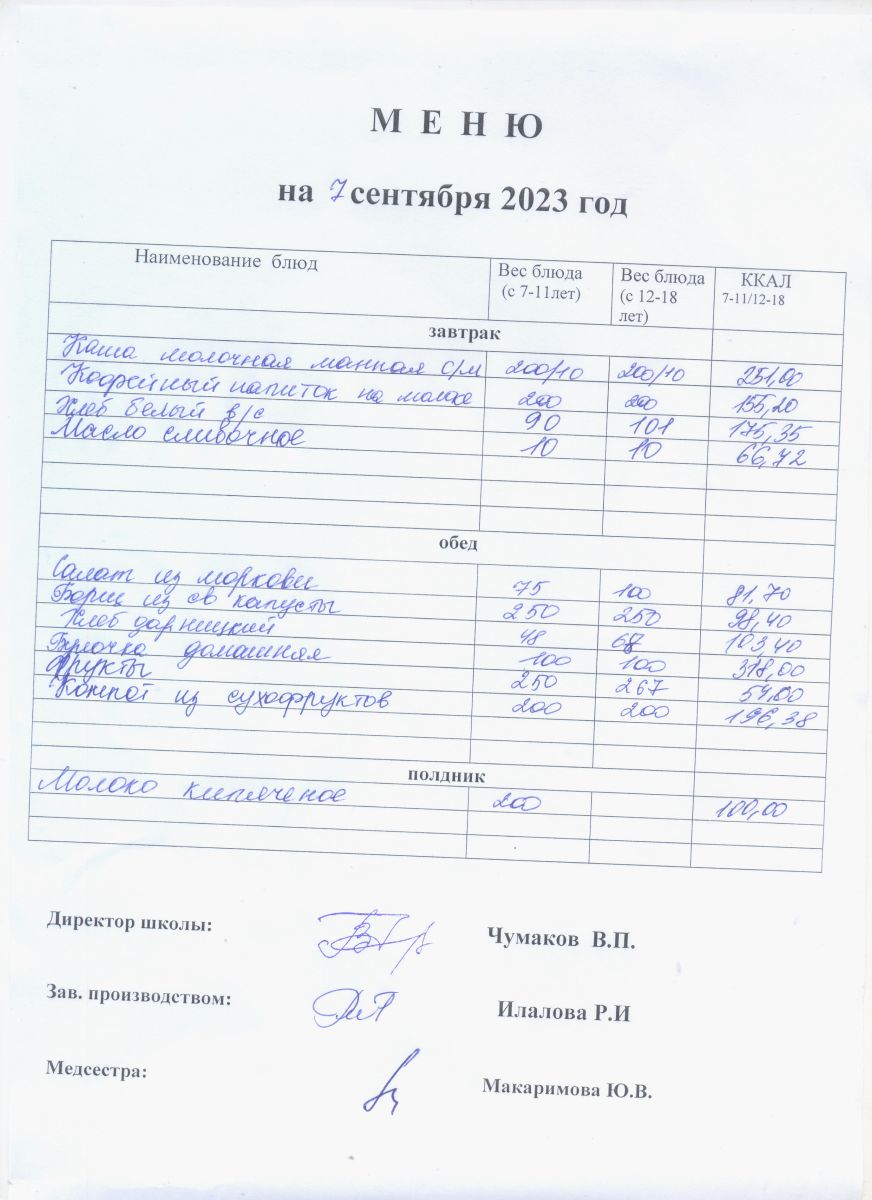 М Е Н Ю
на 7 сентября 2023 год
Наименование блюд Вес блюда (с 7-11лет) Вес блюда (с 12-18 лет) ККАЛ 7-11/12-18
завтрак
Каша молочная манная с/м 200/10 200/10 251,00
Кофейный напиток на молоке 200 200 155,20
Хлеб белый в/с 90 101 175,35
Масло сливочное 10 10 66,72
обед
Салат из моркови 75 100 81,70
Борщ из св капусты 250 250 98,40
Хлеб дарницкий 48 68 103,40
Булочка домашняя 100 100 318,00
Фрукты 250 267 54,00
Компот из сухофруктов 200 200 196,38
полдник
Молоко кипяченое 200 100,00
Директор школы: Чумаков В.П.
Зав. производством: Илалова Р.И
Медсестра: Макаримова Ю.В.